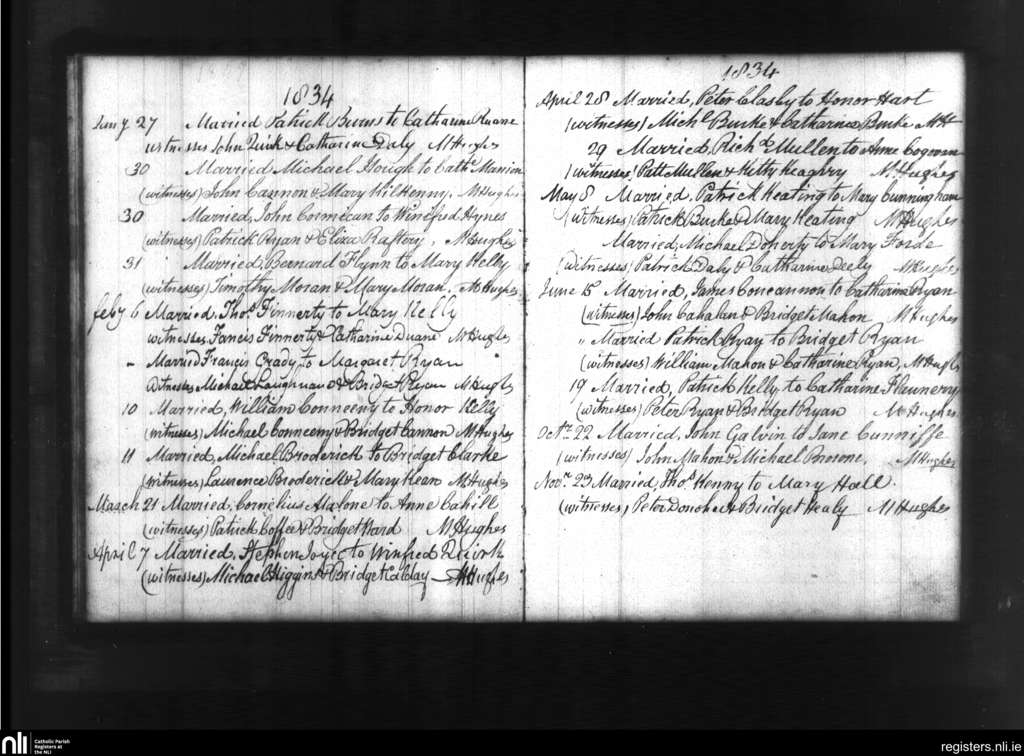 1834
Jany 27 Married Patrick Burns to Catharine Ruane
witnesses John Quirk & Catharine Daly M Hughes
30 Married Michael Hough to Cathe Mannion
(witness) John Cannon & Mary Kilkenny, M Hughes
30 Married, John Cormican to Winefred Hynes
(witness) Patrick Ryan & Eliza Raftery, M Hughes
31 Married, Bernard Flynn to Mary Kelly
(witnesses) Timothy Moran & Mary Moran, M Hughes
feby 6 Married, Thos Finnerty to Mary Kelly
witnesses, Francis Finnerty & Catharine Duane M Hughes
" Married Francis Grady to Margaret Ryan
Witnesses Michael Loughnan & Bridget Ryan M Hughes
10 Married, William Conneeny to Honor Kelly
(witnesses) Michael Conneeny & Bridget Cannon M Hughes
11 Married, Michael Broderick to Bridget Clarke
(witnesses) Laurence Broderick & Mary Kean M Hughes
March 21 Married, Cornelius Malone to Anne Cahill
(witnesses) Patrick Coffee & Bridget Ward M Hughes
April 7 Married, Stephen Joyce to Winfred Quirk
(witnesses) Michael Higgins & Bridget M Hughes
1834
April 28 Married, Peter Clasby to Honor Hart
(witnesses) Michl Burke & Catharine Burke MH
29 Married, Richd Mullen to Anne
(witness, Patt Mullen & Kitty Keaghry M Hughes
May 8 Married, Patrick Keating to Mary Cunningham
(witness) Patrick Burke & Mary Keating M Hughes
Married, Michael Doherty to Mary Forde
(witnesses) Patrick Daly & Catharine Deely M Hughes
June 15 Married, James Concannon to Catharine Ryan
(witness) John Cahalan & Bridget Mahon M Hughes
" Married Patrick Ryan to Bridget Ryan
(witnesses) William Mahon & Catharine Ryan, M Hughes
19 Married, Patrick Kelly to Catharine Flannery
(witnesses) Peter Ryan & Bridget Ryan M Hughes
Octr 22 Married, John Galvin to Jane Cunniffe
(witnesses) John Mahon & Michael M Hughes
Novr 23 Married, Thos Kenny to Mary Hall.
(witnesses, Peter Donohue & Bridget Healy M Hughes
nli Catholic Parish
Registers at
the NLI
registers.nli.ie